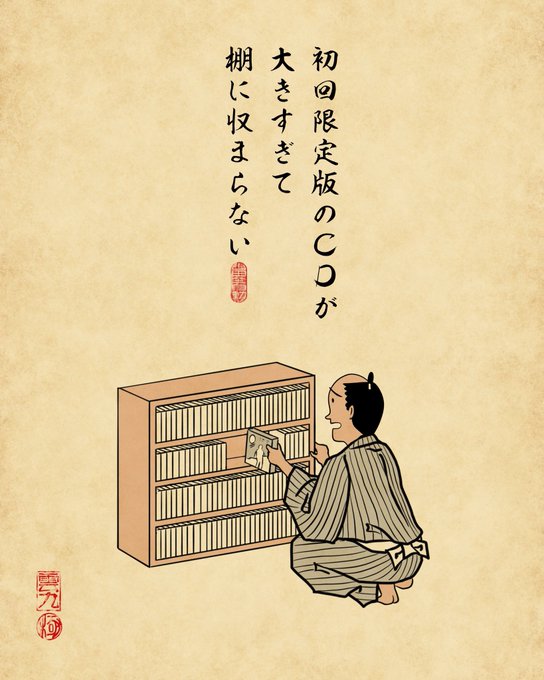 初回限定版のCDが
大きすぎて
棚に収まらない